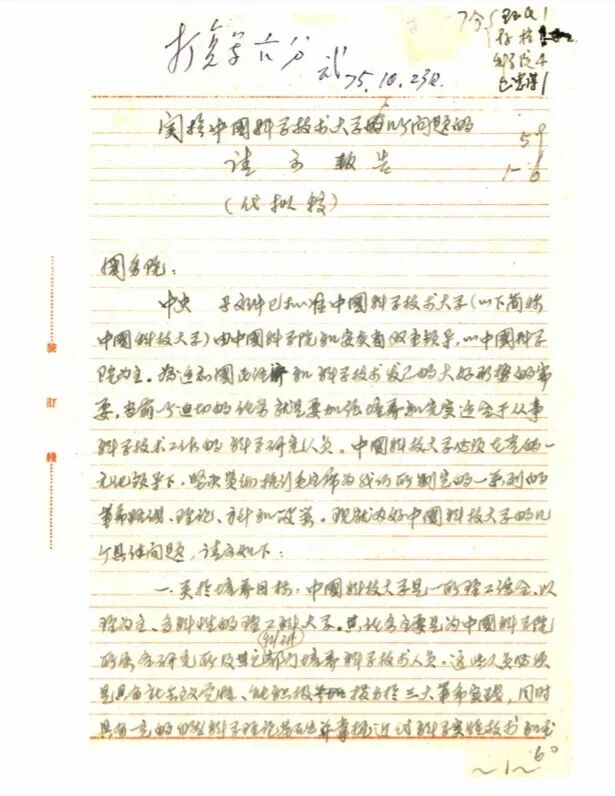 打复写六分
75.10.23
7分
存档
关于中国科学技术大学几个问题的
请示报告
(代拟稿)
国务院:
中央 号文件已批准中国科学技术大学(以下简称
中国科技大学)由中国科学院和安徽省双重领导,以中国科学
院为主。为适应国民经济和科学技术发展的大好形势的需
要,当前一个迫切的任务就是要加强培养和充实适合于从事
科学技术工作的科学研究人员。中国科技大学必须在党的一
元化领导下,坚决贯彻执行毛主席为我们所制定的一系列的
革命路线、理论、方针和政策。现就办好中国科技大学的几
个具体问题,请示如下:
一、关于培养目标:中国科技大学是一所理工结合,以
理为主、多科性的理工科大学。其任务主要是为中国科学院
所属各研究所及其它部门培养科学技术人员。这些人员必须
是具有社会主义觉悟、能积极投身于三大革命实践,同时
具有一定的科学理论基础并掌握近代科学实验技术和
装
订
线
~1~
60